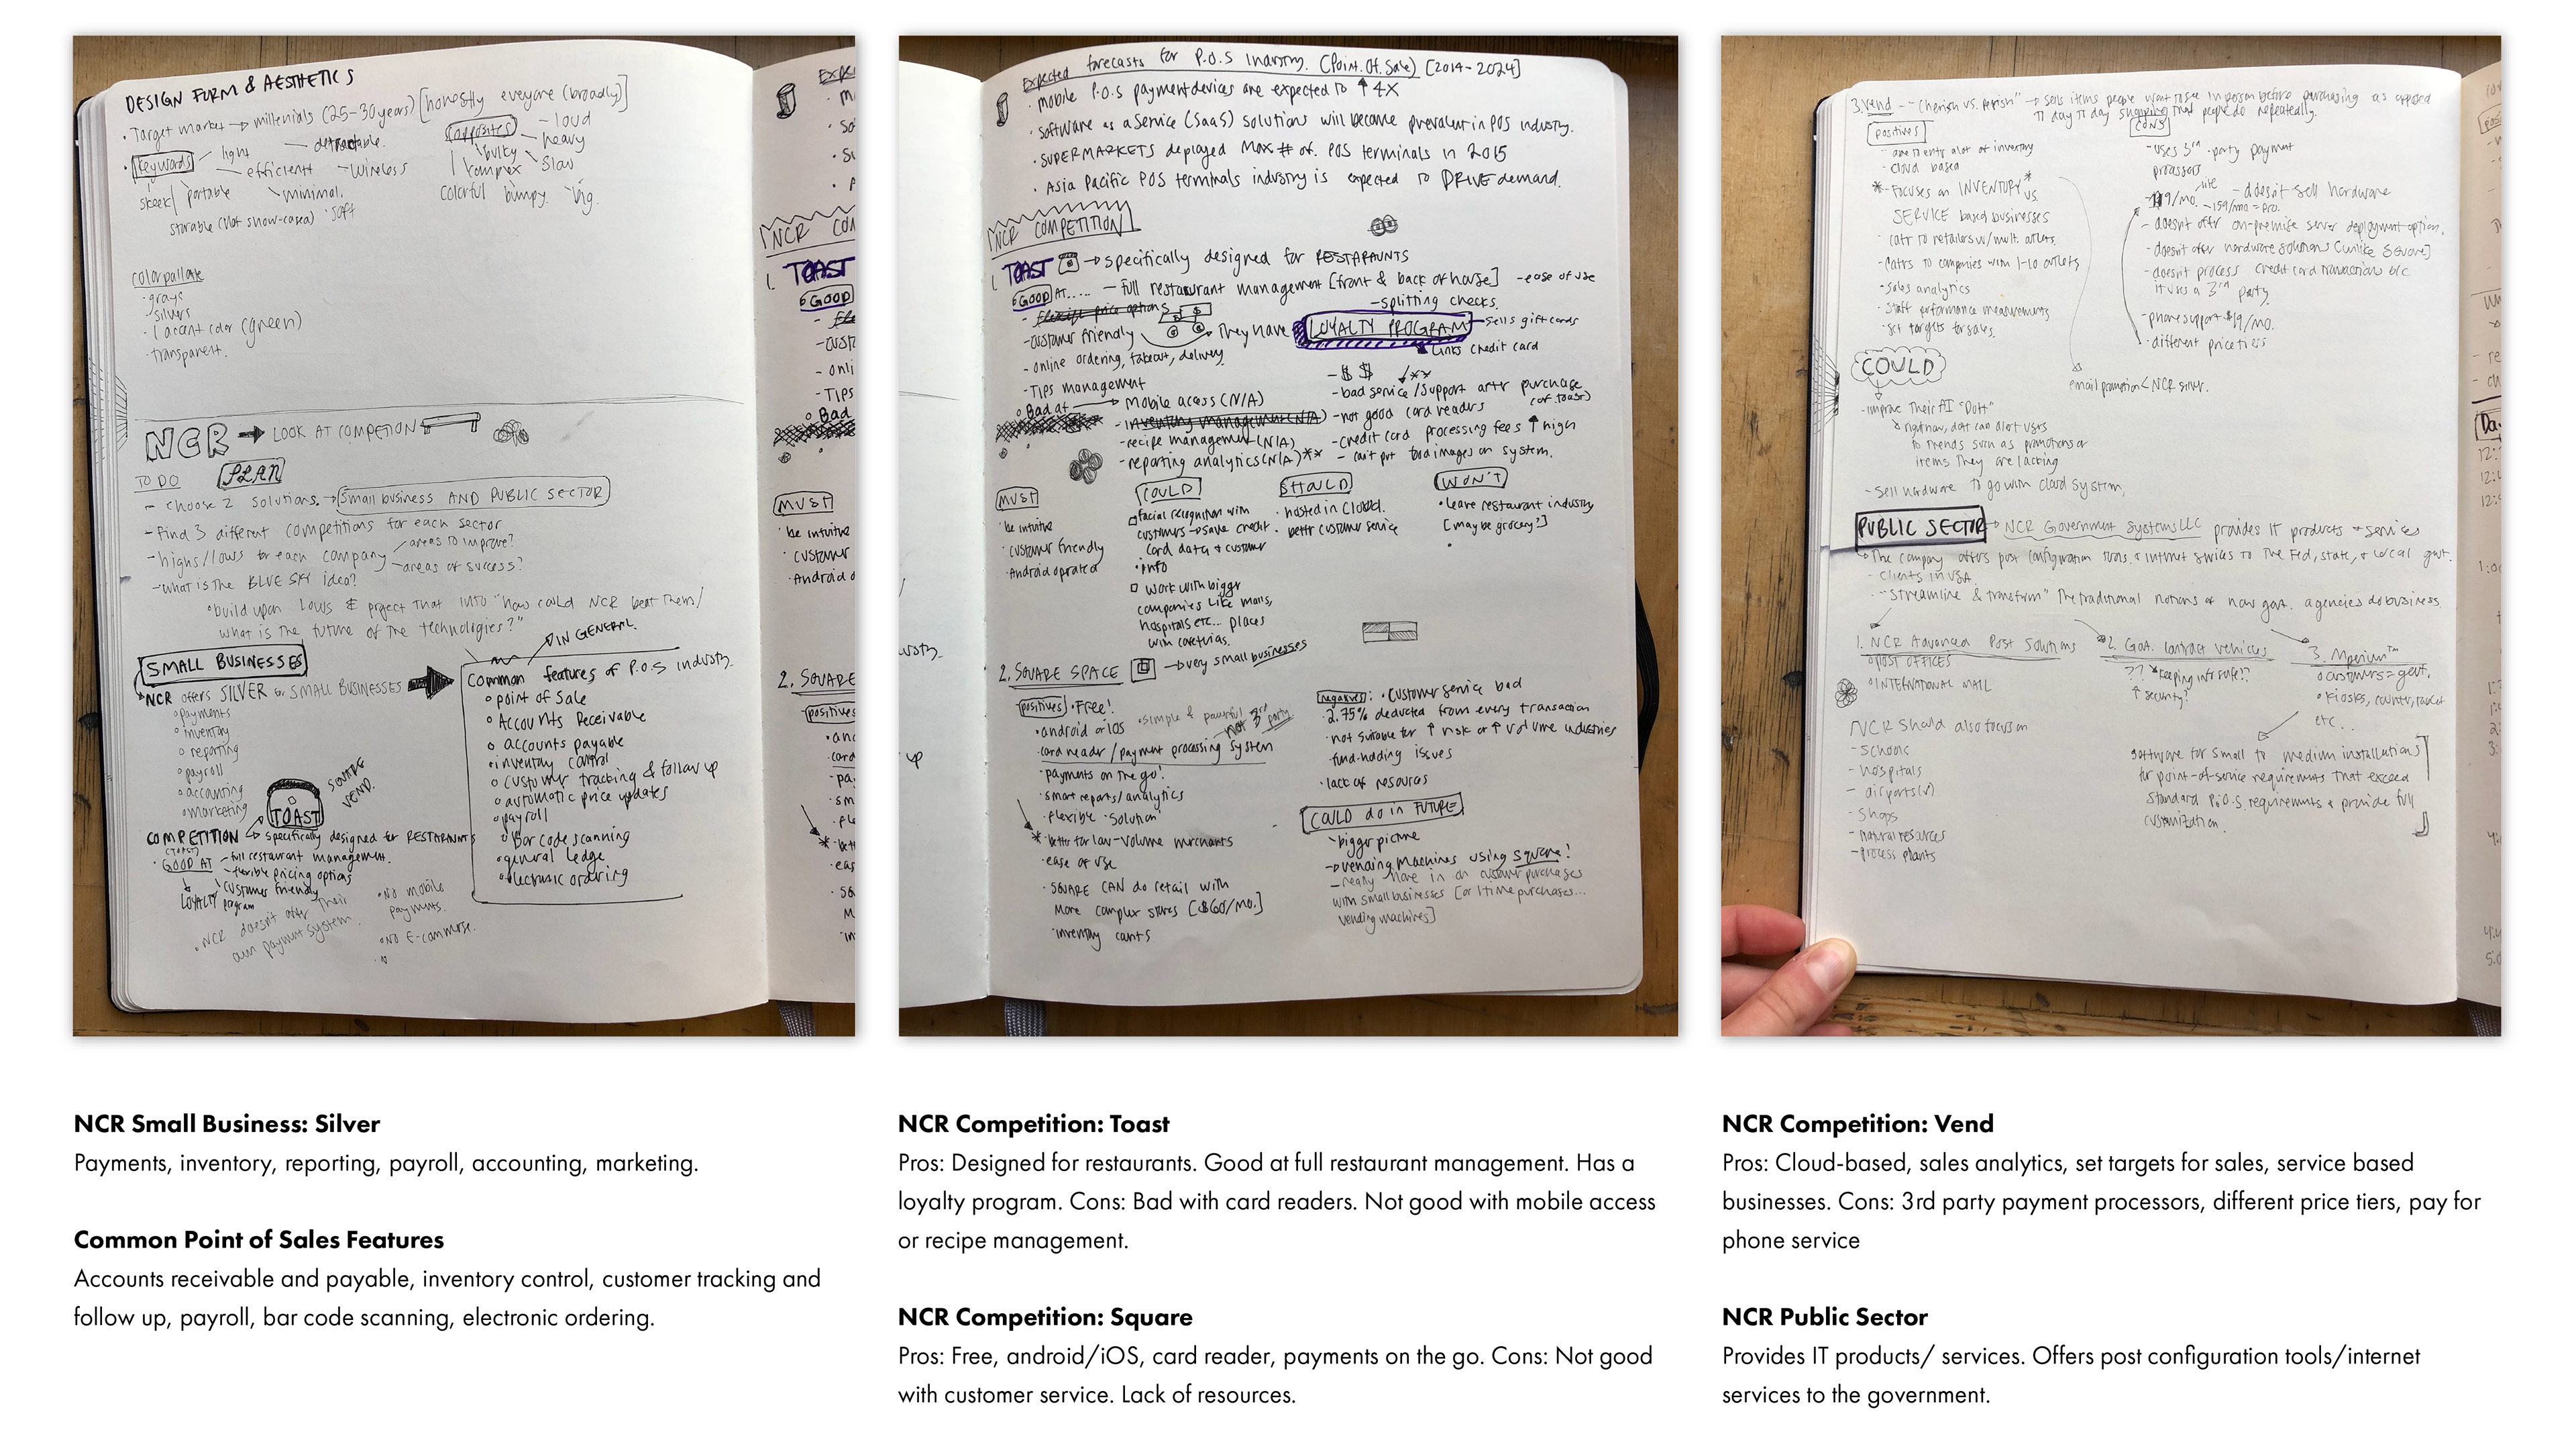 DESIGN FORM & AESTHETICS
• Target market → millenials (25-30 years) [honestly everyone (broadly)]
• Keywords
light
detachable.
efficient
wireless
sleek
portable
minimal.
storable (not show-cased)
soft
opposites
loud
heavy
bulky
slow
complex
colorful
bumpy.
big.
color pallate
- grays
- silvers
- 1 accent color (green)
- transparent.
NCR → LOOK AT COMPETION
TO DO PLAN
- Choose 2 solutions. → Small business AND PUBLIC SECTOR
- Find 3 different competitions for each sector
- highs/lows for each company
areas to improve?
areas of success?
- What is the BLUE SKY idea?
• build upon lows & project that into "how could NCR beat them/
what is the future of the technologies?"
SMALL BUSINESSES
NCR offers SILVER for SMALL BUSINESSES
• payments
• inventory
• reporting
• payroll
• accounting
• marketing
IN GENERAL.
Common features of P.O.S industry.
• point of sale
• Accounts Receivable
• accounts payable
• inventory control
• customer tracking & follow up
• automatic price updates
• payroll
• Bar code scanning
• general ledge
• electronic ordering
TOAST
SQUARE
VEND.
COMPETITION → specifically designed for RESTARAUNTS
(TOAST)
• GOOD AT - full restaurant management.
- flexible pricing options
customer friendly
LOYALTY program
• NCR doesn't offer their
own payment system.
• No mobile
payments.
• No E-commerse.
Expected forecasts for P.O.S Industry. (Point. Of. Sale) [2014-2024]
• Mobile P.O.S payment devices are expected to ↑ 4X
• Software as a Service (SaaS) solutions will become prevalent in POS industry.
• SUPERMARKETS deployed max # of. POS terminals in 2015
• Asia Pacific POS terminals industry is expected to DRIVE demand.
NCR COMPETITION
1. TOAST → specifically designed for RESTARAUNTS
• GOOD AT..... - full restaurant management [front & back of house] - ease of use
- flexible price options
- splitting checks.
- customer friendly
They have LOYALTY PROGRAM
- sells gift cards
links credit card
- Online ordering, takeout, delivery
- Tips management
• Bad at → Mobile access (N/A)
- inventory management (N/A)
- recipe management (N/A)
- reporting analytics (N/A) **
- $ $
- bad service/support after purchase
(of toast)
- not good card readers
- credit card processing fees ↑ high
- can't put food images on system.
MUST
• be intuitive
• customer friendly
• Android operated
COULD
facial recognition with
customers → save credit
card data & customer
info
work with bigger
companies like malls,
hospitals etc... places
with cafeterias.
SHOULD
• hosted in Cloud.
• better customer service
WON'T
• leave restaurant industry
[maybe grocery?]
2. SQUARE SPACE → very small businesses
positives • Free!
• simple & powerful
not 3rd party
• android or iOS
• card reader/payment processing system
• payments on the go!
• smart reports/analytics
• flexible "solution"
* better for low-volume merchants
• ease of use
• SQUARE CAN do retail with
more complex stores [$60/mo.]
• inventory counts
negatives: • Customer service bad
• 2.75% deducted from every transaction
• not suitable for ↑ risk or ↑ volume industries
• fund-holding issues
• lack of resources
COULD do in FUTURE
bigger picture
→ vending machines using square!
with small businesses [or 1 time purchases...
vending machines]
3. Vend - "Cherish vs. Perish" → sells items people want to see in person before purchasing as opposed
to day to day shopping that people do repeatedly.
positives
- cloud based
* - Focuses on INVENTORY * vs.
SERVICE based businesses
- cater to retailers w/ mult. outlets
- caters to companies with 1-10 outlets
- sales analytics
- staff performance measurements
- set targets for sales.
CONS
- uses 3rd party payment
processors
lite
159/mo = pro.
- doesn't sell hardware
- doesn't offer on-premise server deployment option.
- doesn't offer hardware solutions [unlike Square]
- doesn't process credit card transactions b/c
it uses a 3rd party.
- phone support $19/mo.
- different price tiers
email promotion < NCR silver.
COULD
- improve their AI "Dott"
right now, dott can alert users
to trends such as promotions or
items they are lacking
- sell hardware to go with cloud system.
PUBLIC SECTOR → NCR Government Systems LLC provides IT products & services
• The company offers post configuration tools & internet services to the Fed, state, & local govt.
- clients in USA.
- "streamline & transform" the traditional notions of how govt. agencies do business.
1. NCR Advanced Post Solutions
• POST OFFICES
• INTERNATIONAL MAIL
2. GOA. contract vehicles
?? keeping info safe??
↑ security?
3. Mperium™
• customers = govt.
• kiosks, counter,
etc...
software for small to medium installations
for point-of-service requirements that exceed
standard P.O.S requirements & provide full
customization.
NCR should also focus on
- schools
- hospitals
- airports
- shops
- natural resources
- process plants
NCR Small Business: Silver
Payments, inventory, reporting, payroll, accounting, marketing.
Common Point of Sales Features
Accounts receivable and payable, inventory control, customer tracking and
follow up, payroll, bar code scanning, electronic ordering.
NCR Competition: Toast
Pros: Designed for restaurants. Good at full restaurant management. Has a
loyalty program. Cons: Bad with card readers. Not good with mobile access
or recipe management.
NCR Competition: Square
Pros: Free, android/iOS, card reader, payments on the go. Cons: Not good
with customer service. Lack of resources.
NCR Competition: Vend
Pros: Cloud-based, sales analytics, set targets for sales, service based
businesses. Cons: 3rd party payment processors, different price tiers, pay for
phone service
NCR Public Sector
Provides IT products/ services. Offers post configuration tools/internet
services to the government.